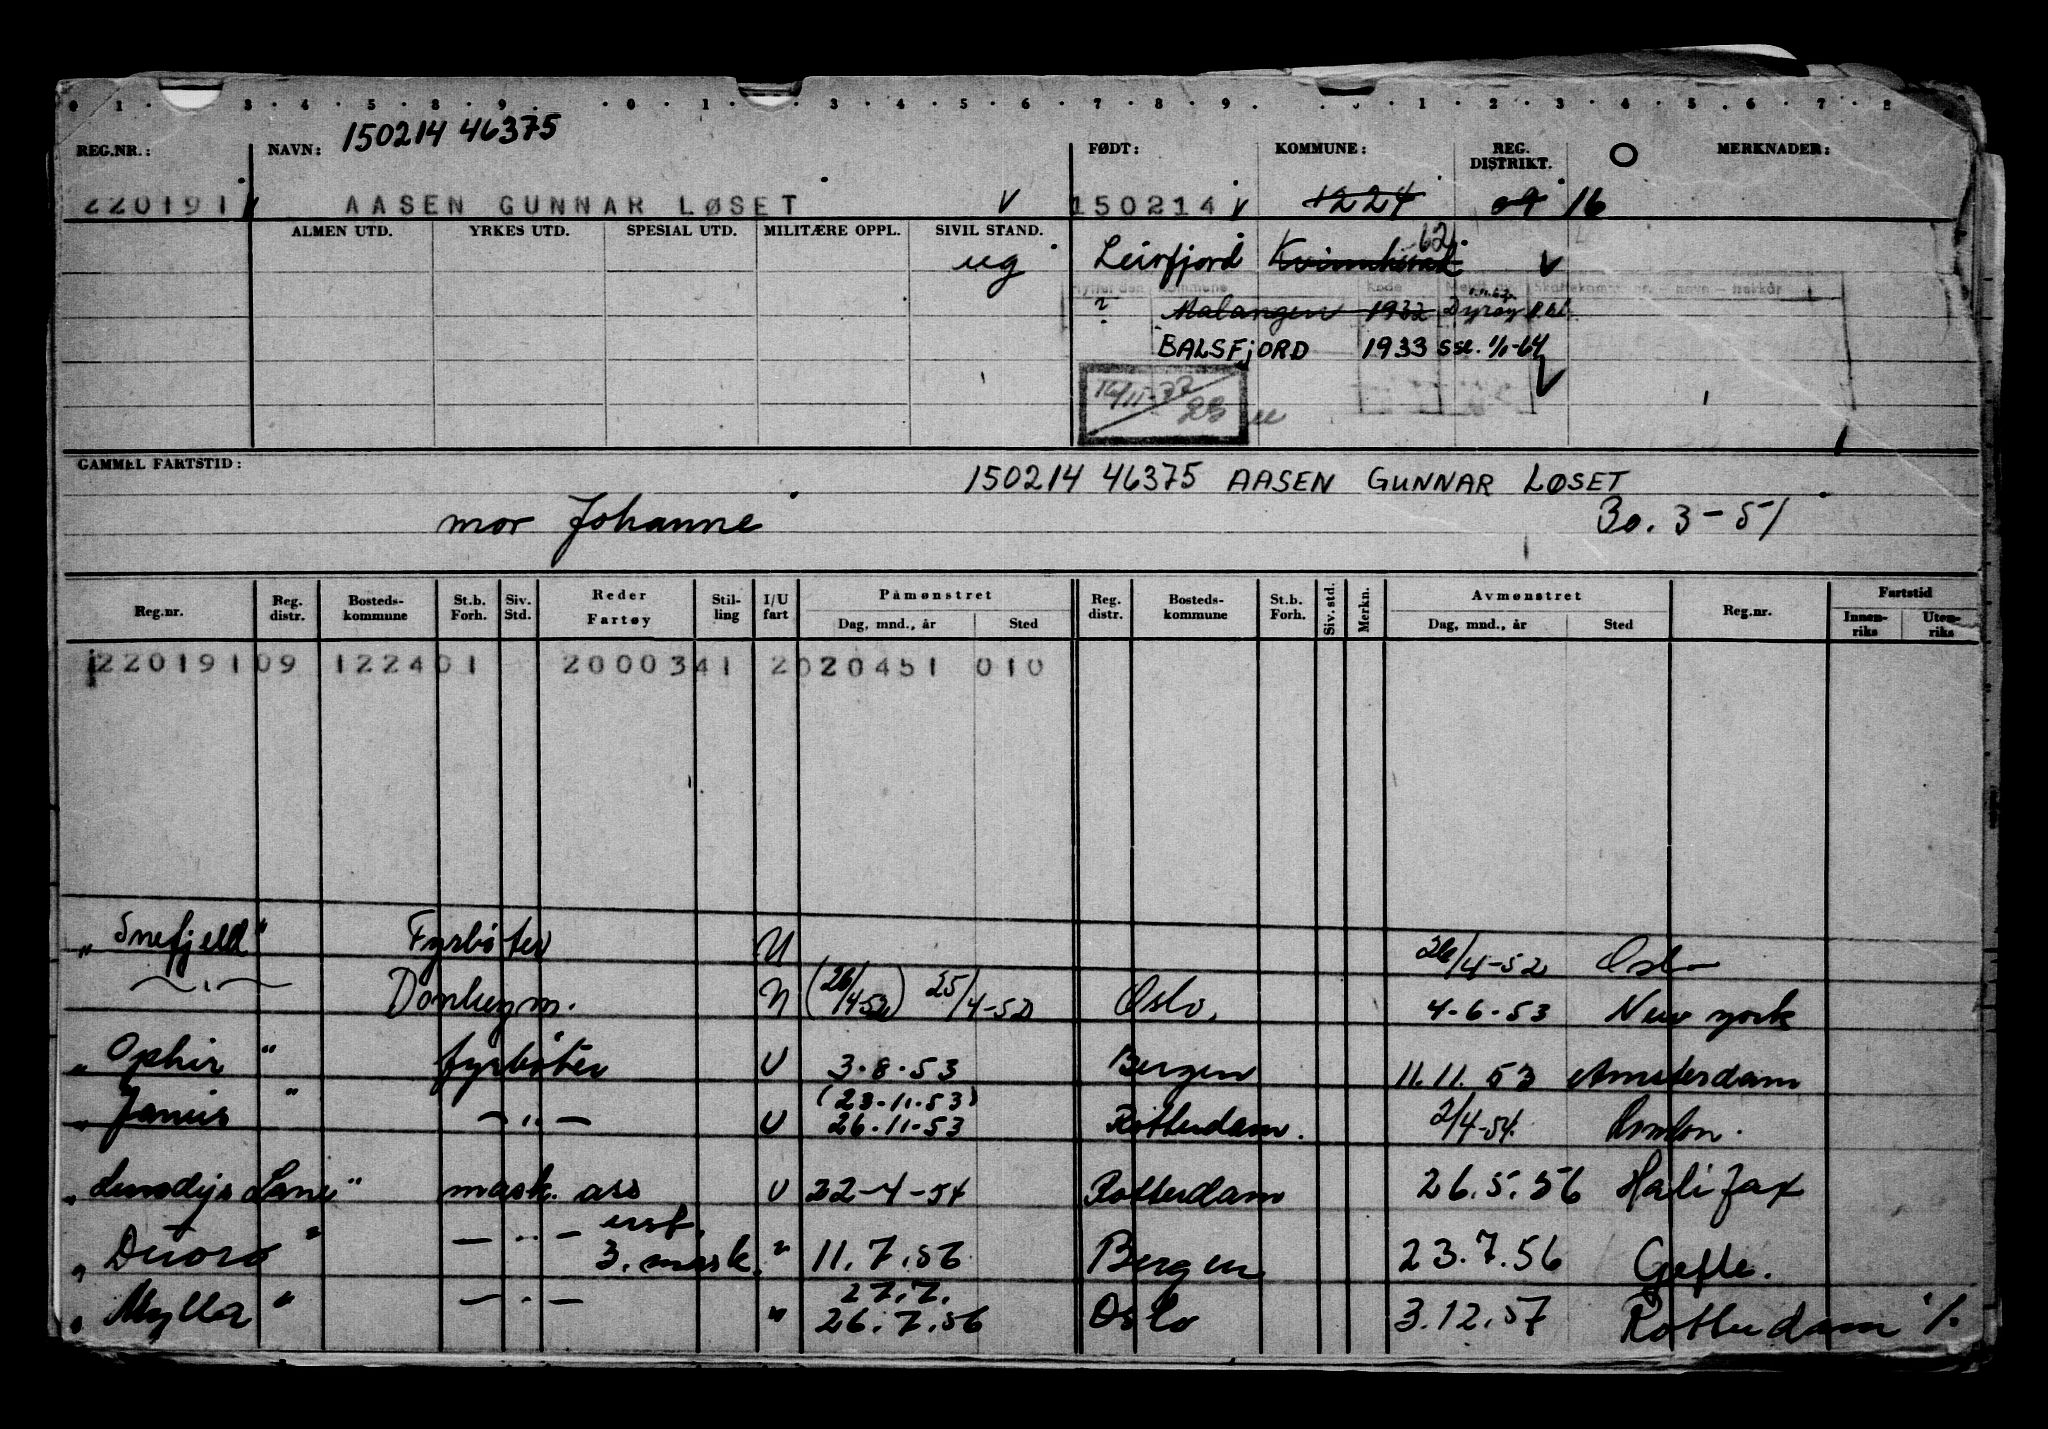 0 1 . 3 . 4 . 5 . 8 . 9 . . 0 . 1 . . 3 . 4 . 5 . 6 . 7 . 8 . 9 . . 0 . 1 . 2 . 3 . 4 . 5 . 6 . 7 . 8
150214 46375
REG.NR.: NAVN: FØDT: KOMMUNE: REG. DISTRIKT. O MERKNADER:
220191 AASEN GUNNAR LØSET V 150214 V 1224 09 16
ALMEN UTD. YRKES UTD. SPESIAL UTD. MILITÆRE OPPL. SIVIL STAND.
ug Leirfjord Kvinnherad 62 V
? Malangen 1932 Dyrøy
BALSFJORD 1933 sse. 1/1-64
V
GAMMEL FARTSTID: 150214 46375 AASEN GUNNAR LØSET
mor Johanne Bo. 3-51
Reg.nr. Reg. distr. Bosteds- kommune St.b. Forh. Siv. Std. Reder Fartøy Stil- ling I/U fart Påmønstret Dag, mnd., år Sted Reg. distr. Bosteds- kommune St.b. Forh. Siv. std. Merkn. Avmønstret Dag, mnd., år Sted Reg.nr. Fartstid Innen- riks Uten- riks
220191 09 1224 01 2000341 2020451 010
„ Snefjeld " Fyrbøter U 26/4-52 Oslo
— " — Donkeym. U (26/4-52) 25/4-52 Oslo. 4-6-53 New York
„ Ophir " fyrbøter U 3.8.53 Bergen 11.11.53 Amsterdam
(23.11.53)
„ Janus " — " — U 26.11.53 Rotterdam. 2/4-54. London.
„ Lundys Lane " mask. ass U 22-4-54 Rotterdam 26.5.56 Halifax
„ Duoro " — " — 3. mask. " 11.7.56 Bergen 23.7.56 Gefle.
27.7.
„ Mylla " — " — " 26.7.56 Oslo 3.12.57 Rotterdam ./.